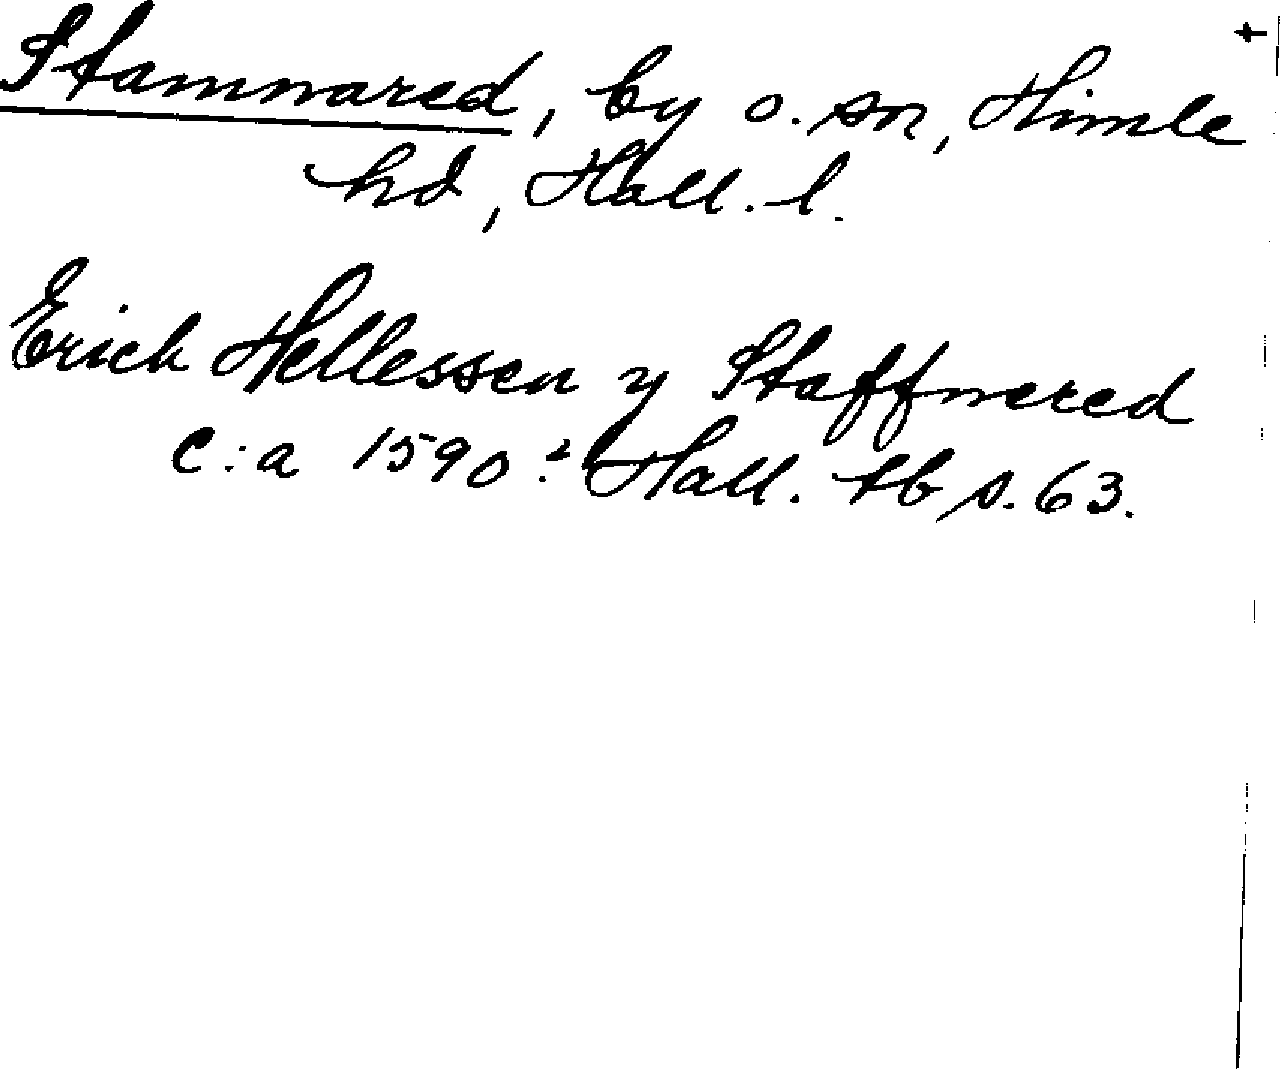 Stamnared, by o. sn, Himle
hd, Hall. l.
Erich Hellessen y Staffnered
c:a 1590. Hall. tb s. 63.